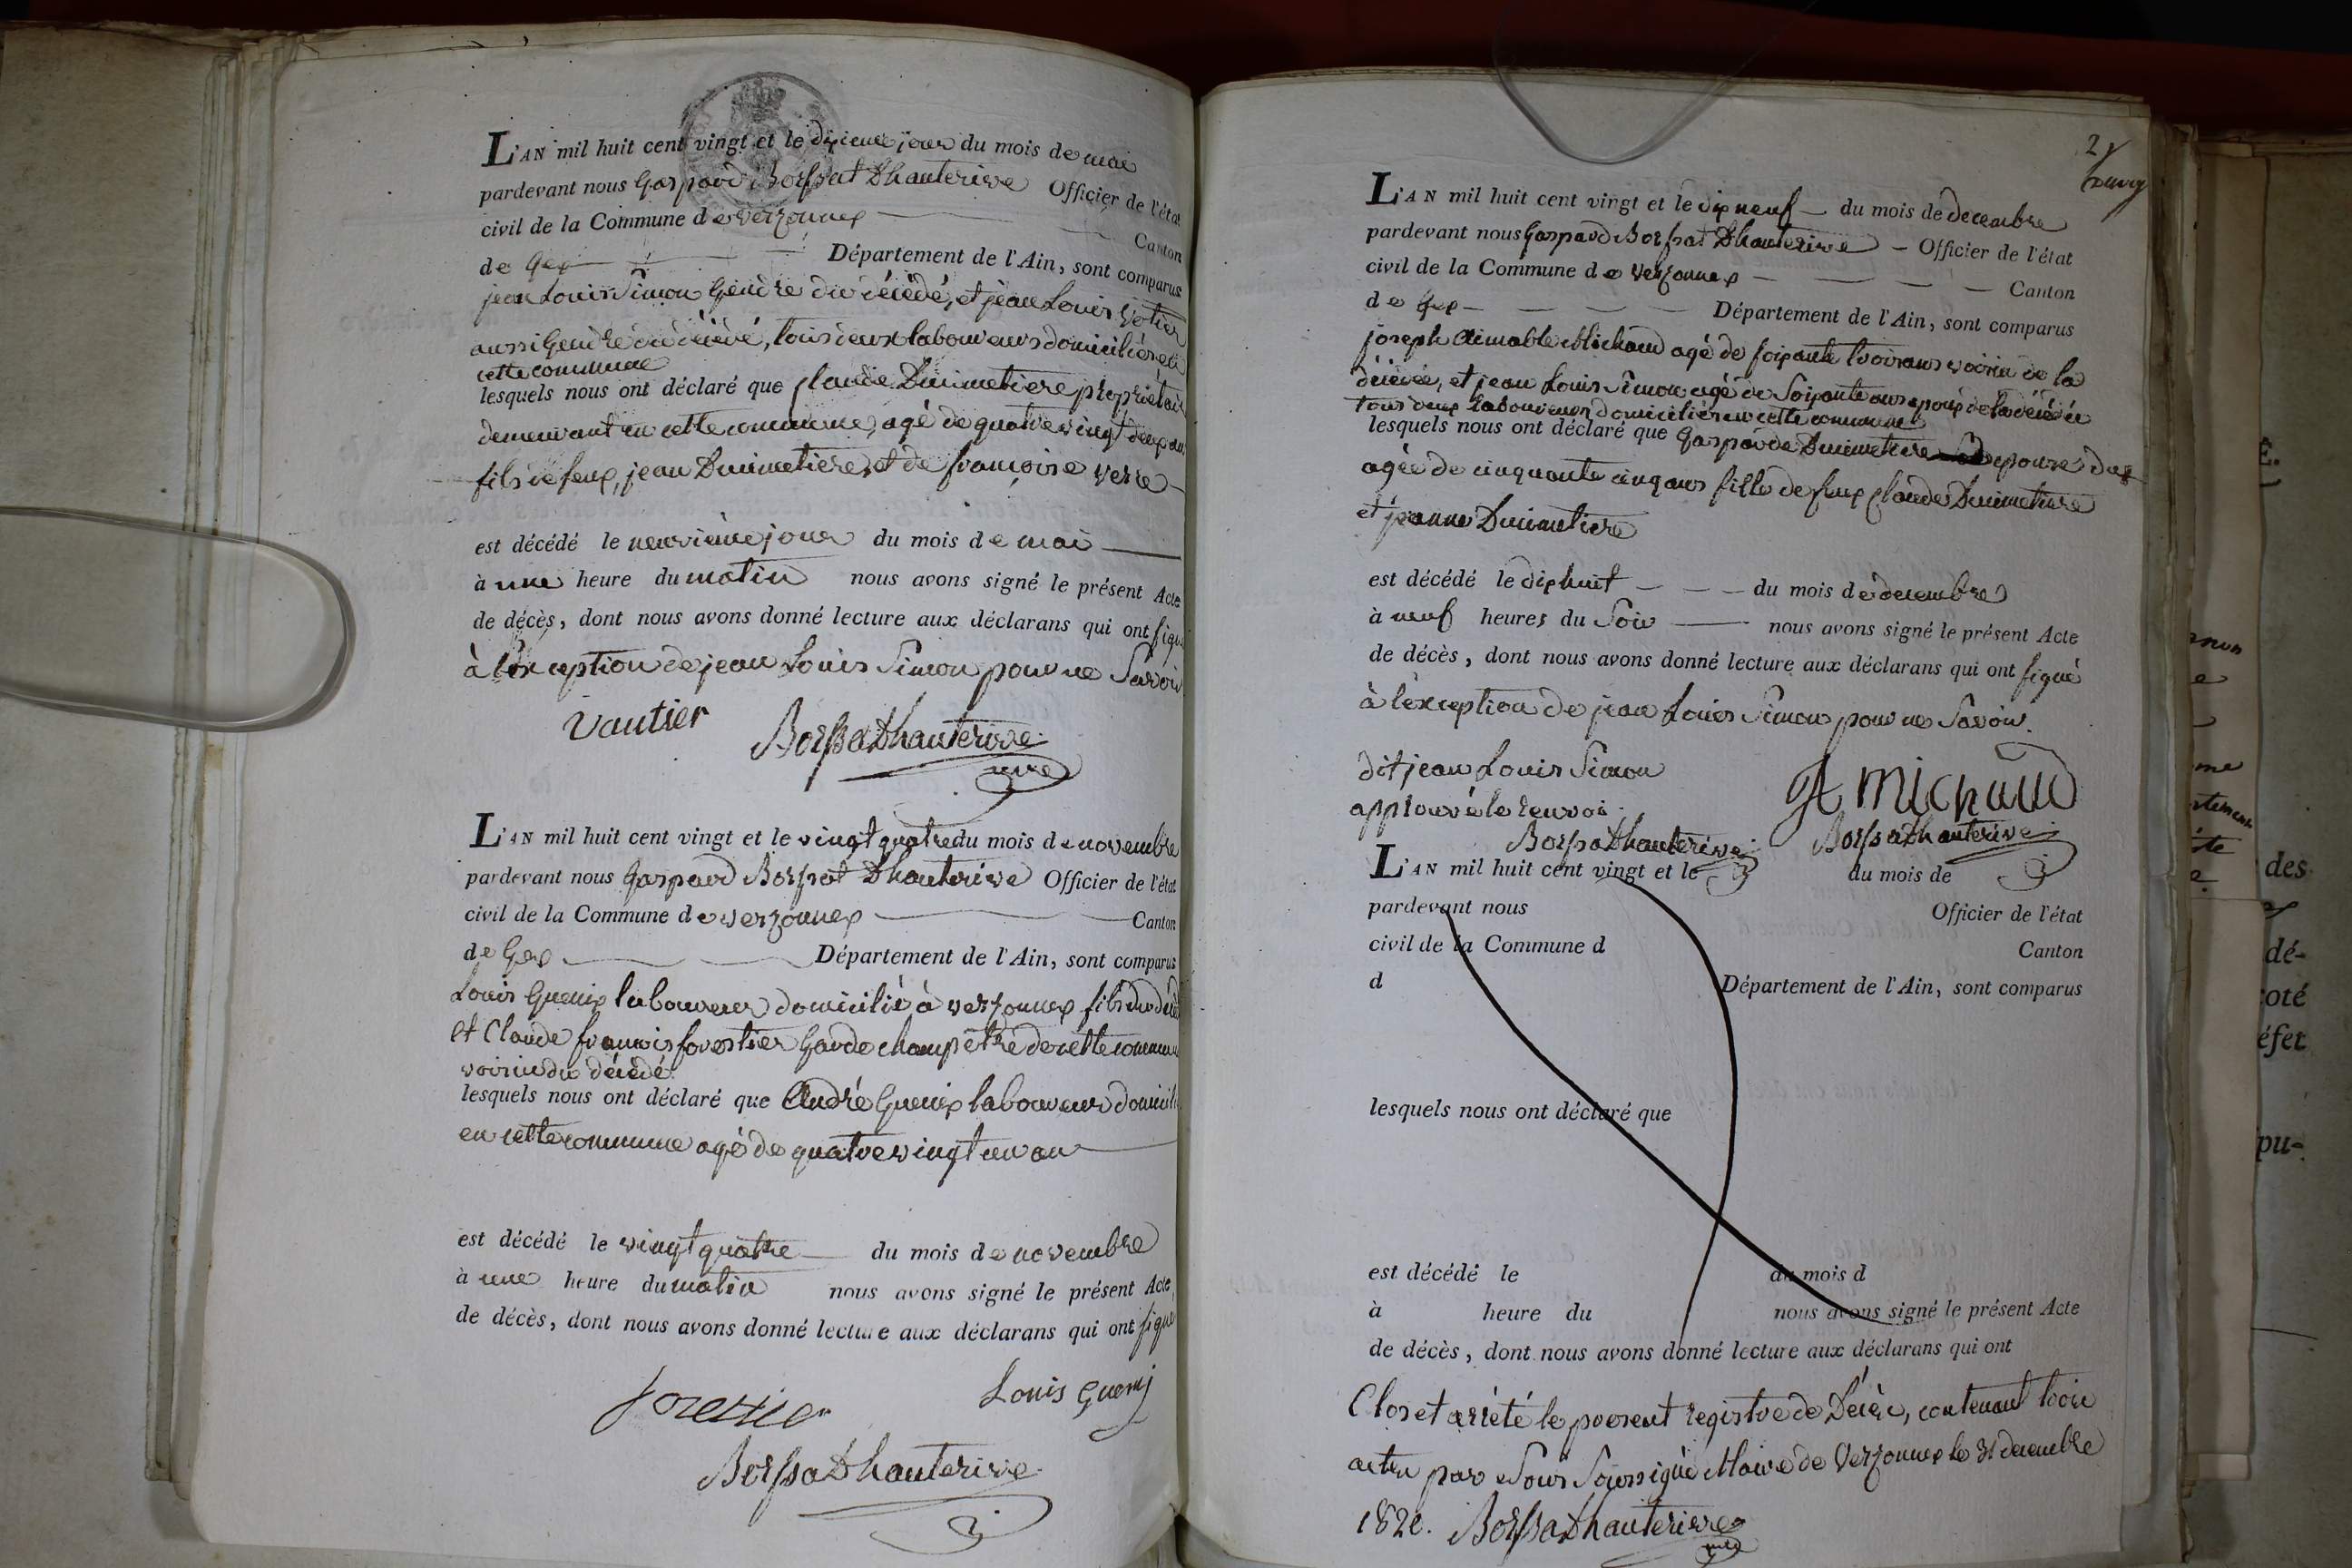 L'AN mil huit cent vingt et le dixieme jour du mois de mai
pardevant nous Gaspard Borssat Dhauterive Officier de l'état
civil de la Commune de verzonnex Canton
de Gex Département de l'Ain, sont comparus
jean Louis Simon Gendre du décédé, et jean Louis Votier
aussi Gendre du décédé, tous deux laboureurs domiciliés en
cette commune
lesquels nous ont déclaré que claude Dunimetiere proprietair
demeurant en cette commune, agé de quatre vingt deux ans
fils de feux, jean Dunimetiere, et de francoise verre
est décédé le neuvième jour du mois de mai
à une heure du matin nous avons signé le présent Acte
de décès, dont nous avons donné lecture aux déclarans qui ont signé
à l'exception de jean Louis Simon pour ne Savoir
Vautier
Borssat Dhauterive
mre
L'AN mil huit cent vingt et le vingt quatre du mois de novembre
pardevant nous Gaspard Borssat Dhauterive Officier de l'état
civil de la Commune de verzonnex Canton
de Gex Département de l'Ain, sont comparus
Louis Guenix laboureur domicilié à verzonnex fils du
et Claude francois forestier Garde champêtre de cette commune
voisin du décédé
lesquels nous ont déclaré que André Guenix laboureur domicili
en cette commune agé de quatre vingt un an
est décédé le vingt quatre du mois de novembre
à une heure du matin nous avons signé le présent Acte
de décès, dont nous avons donné lecture aux déclarans qui ont signé
forestier
Louis Guenix
Borssat Dhauterive
2
L'AN mil huit cent vingt et le dix neuf du mois de decembre
pardevant nous Gaspard Borssat Dhauterive Officier de l'état
civil de la Commune de Verzonnex Canton
de Gex Département de l'Ain, sont comparus
joseph Aimable Michaud agé de soixante trois ans voisin de la
décédée, et jean Louis Simon agé de Soixante ans epoux de la décédée
tous deux laboureurs domiciliés en cette commune
lesquels nous ont déclaré que Gasparde Dunimetiere epouse du
agée de cinquante cinq ans fille de feux claude Dunimetiere
et jeanne Dunimetiere
est décédé le dix huit du mois de decembre
à neuf heures du Soir nous avons signé le présent Acte
de décès, dont nous avons donné lecture aux déclarans qui ont signé
à l'exception de jean Louis Simon pour ne Savoir
dit jean Louis Simon
approuvé le renvoi
JA Michaud
Borssat Dhauterive
Borssat Dhauterive
L'AN mil huit cent vingt et le du mois de
pardevant nous Officier de l'état
civil de la Commune d Canton
d Département de l'Ain, sont comparus
lesquels nous ont déclaré que
est décédé le du mois d
à heure du nous avons signé le présent Acte
de décès, dont nous avons donné lecture aux déclarans qui ont
Clos et arrêté le present registre de Décès, contenant trois
actes par Nous Soussigné Maire de Verzonnex le 31 decembre
1820. Borssat Dhauterive
mre
des
dé-
coté
éfet
pu-